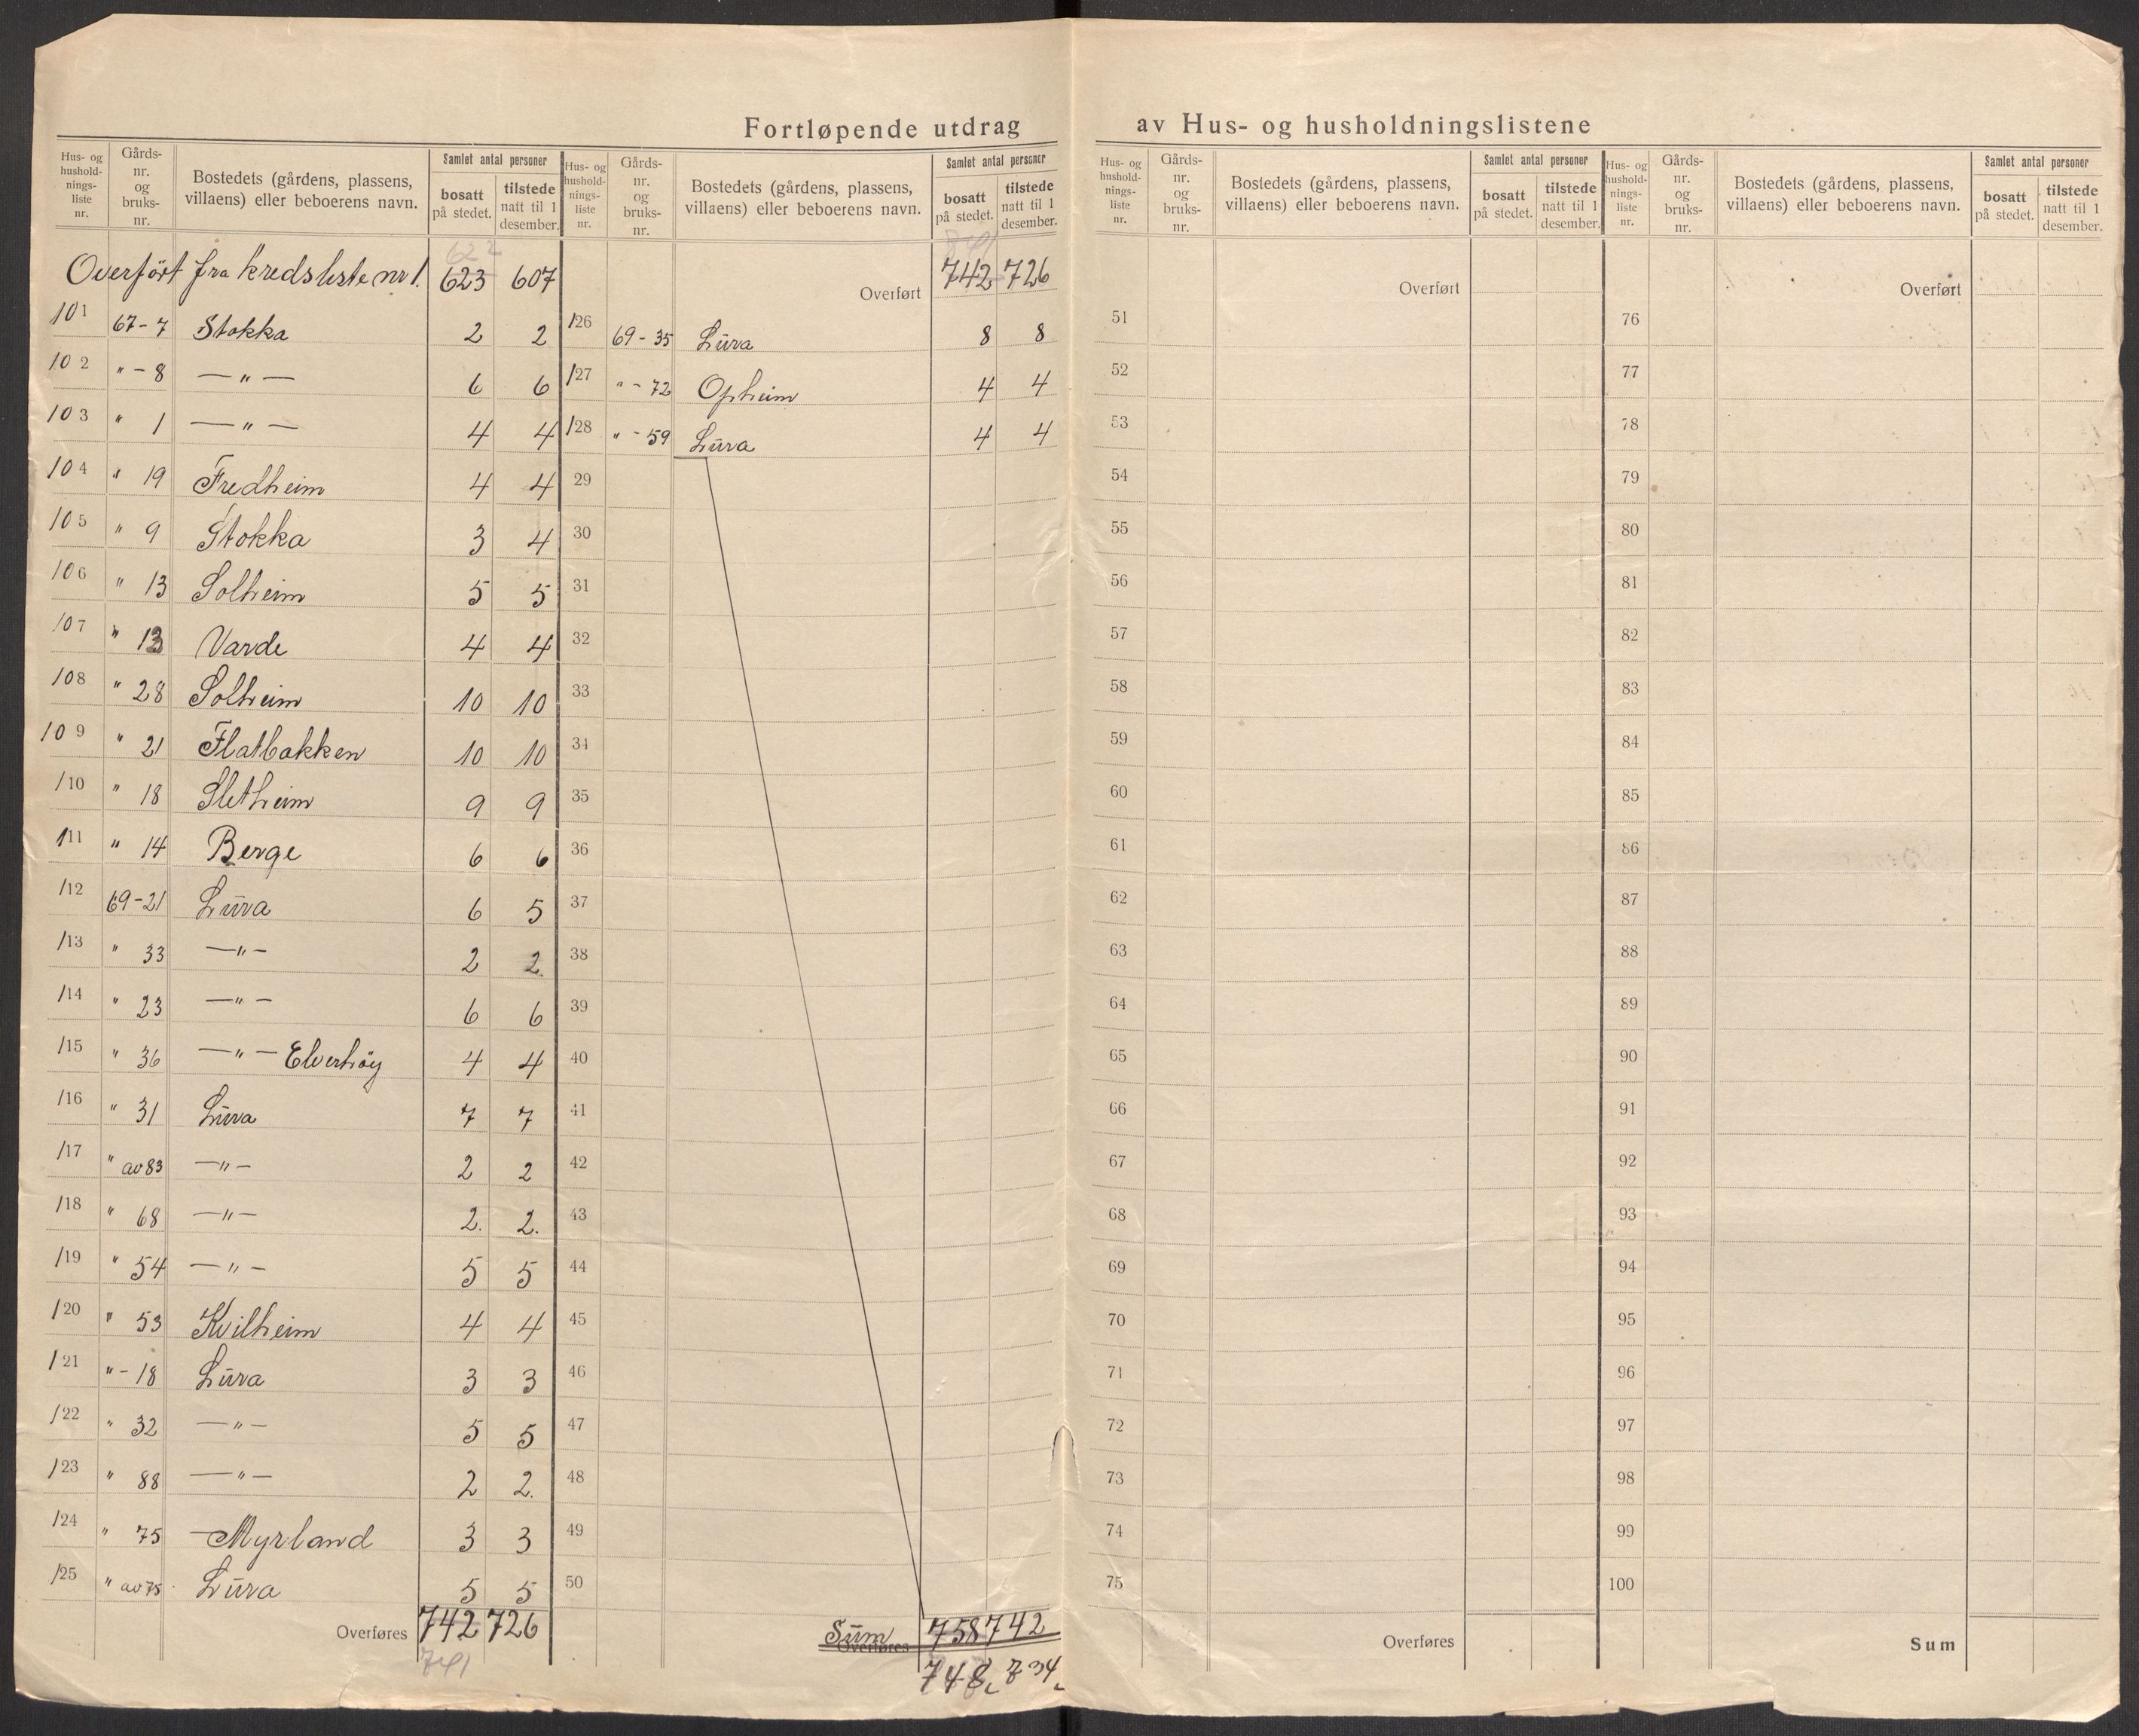 Fortløpende utdrag av Hus- og husholdningslistene
Hus- og husholdningsliste nr. Gårds-nr. og bruks-nr. Bostedets (gårdens, plassens, villaens) eller beboerens navn. Samlet antal personer bosatt på stedet. tilstede natt til 1 desember.
622
Overført fra kredsliste nr 1. 623 607
101 67-7 Stokka 2 2
102 " - 8 — " — 6 6
103 " 1 — " — 4 4
104 " 19 Fredheim 4 4
105 " 9 Stokka 3 4
106 " 13 Solheim 5 5
107 " 13 Varde 4 4
108 " 28 Solheim 10 10
109 " 21 Flatbakken 10 10
110 " 18 Sletheim 9 9
111 " 14 Berge 6 6
112 69-21 Lura 6 5
113 " 33 — " — 2 2.
114 " 23 — " — 6 6
115 " 36 — " — Elverhöy 4 4
116 " 31 Lura 7 7
117 " av 83 — " — 2 2
118 " 68 — " — 2. 2.
119 " 54 — " — 5 5
120 " 53 Kvilheim 4 4
121 " - 18 Lura 3 3
122 " 32 — " — 5 5
123 " 88 — " — 2 2.
124 " 75 Myrland 3 3
125 " av 75 Lura 5 5
Overføres 742 726
741
Hus- og husholdningsliste nr. Gårds-nr. og bruks-nr. Bostedets (gårdens, plassens, villaens) eller beboerens navn. Samlet antal personer bosatt på stedet. tilstede natt til 1 desember.
741
Overført 742 726
126 69 - 35 Lura 8 8
127 " - 72 Opheim 4 4
128 " - 59 Lura 4 4
29
30
31
32
33
34
35
36
37
38
39
40
41
42
43
44
45
46
47
48
49
50
Sum 758 742
Overføres
748 734
Hus- og husholdningsliste nr. Gårds-nr. og bruks-nr. Bostedets (gårdens, plassens, villaens) eller beboerens navn. Samlet antal personer bosatt på stedet. tilstede natt til 1 desember.
Overført
51
52
53
54
55
56
57
58
59
60
61
62
63
64
65
66
67
68
69
70
71
72
73
74
75
Overføres
Hus- og husholdningsliste nr. Gårds-nr. og bruks-nr. Bostedets (gårdens, plassens, villaens) eller beboerens navn. Samlet antal personer bosatt på stedet. tilstede natt til 1 desember.
Overført
76
77
78
79
80
81
82
83
84
85
86
87
88
89
90
91
92
93
94
95
96
97
98
99
100
Sum